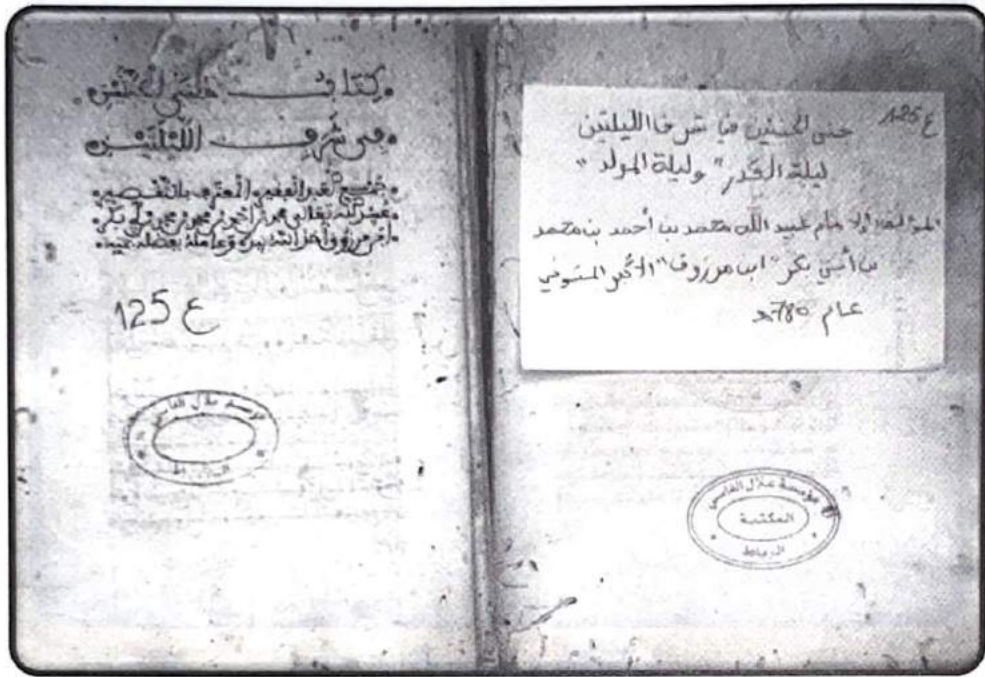 ع 125
جنى الجنتين في شرف الليلتين
ليلة القدر" وليلة المولد"
المؤلف: الإمام عبد الله محمد بن أحمد بن محمد
بن أبي بكر "ابن مرزوق" المتوفى
عام 780هـ
مؤسسة علال الفاسي
المكتبة
الرباط
كتاب جنى الجنتين
في شرف الليلتين
جمع العبد الفقير المعترف بالتقصير
محمد بن أحمد بن محمد بن محمد بن أبي بكر
بن مرزوق
ع 125
مؤسسة علال الفاسي
الرباط